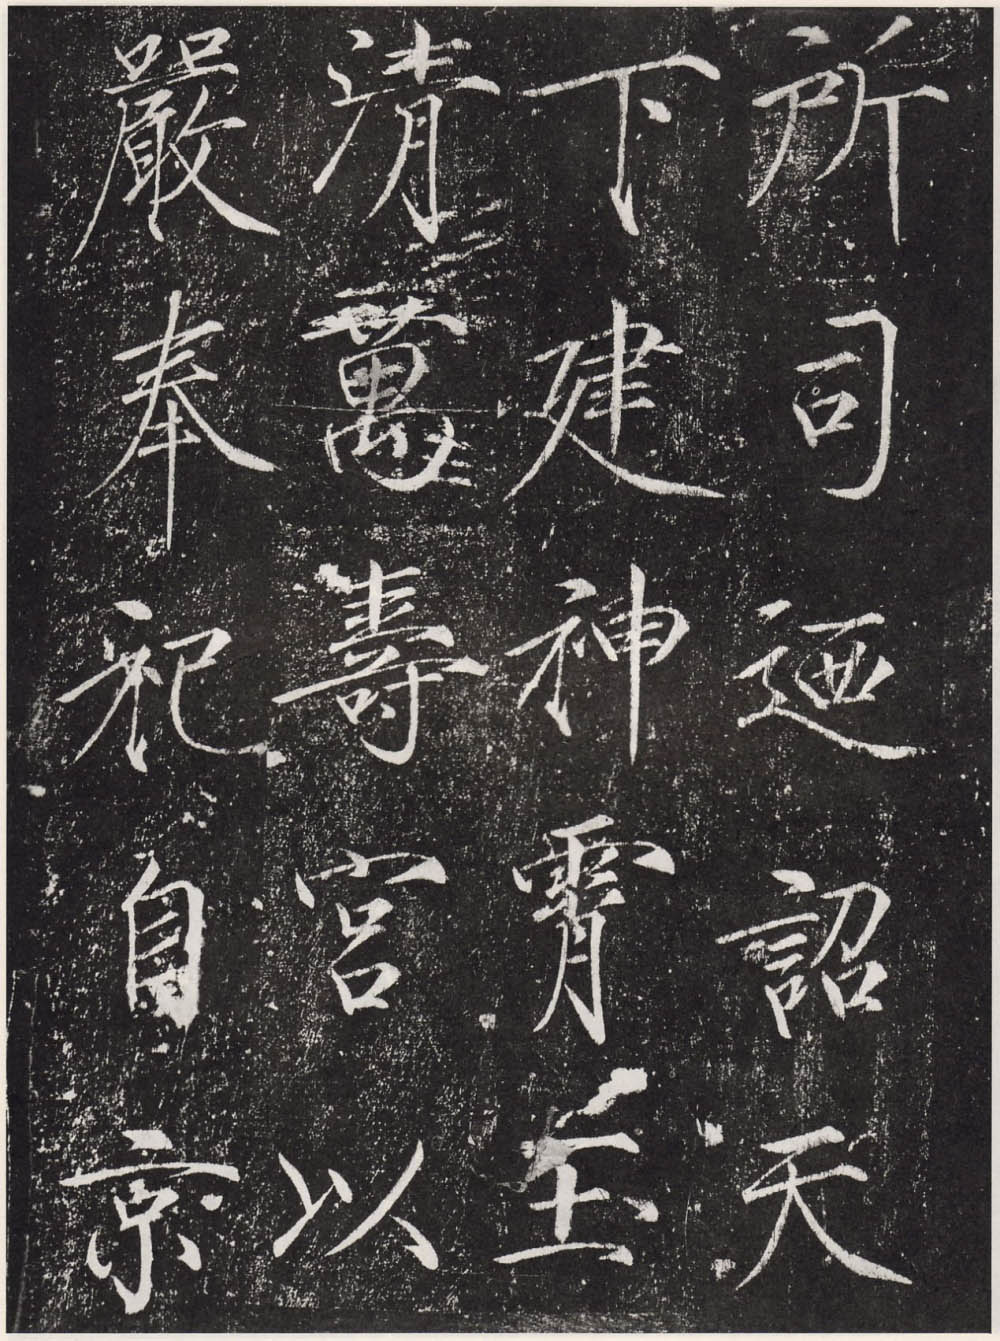 所司迺詔天
下建神霄玉
清萬壽宮以
嚴奉祀自京